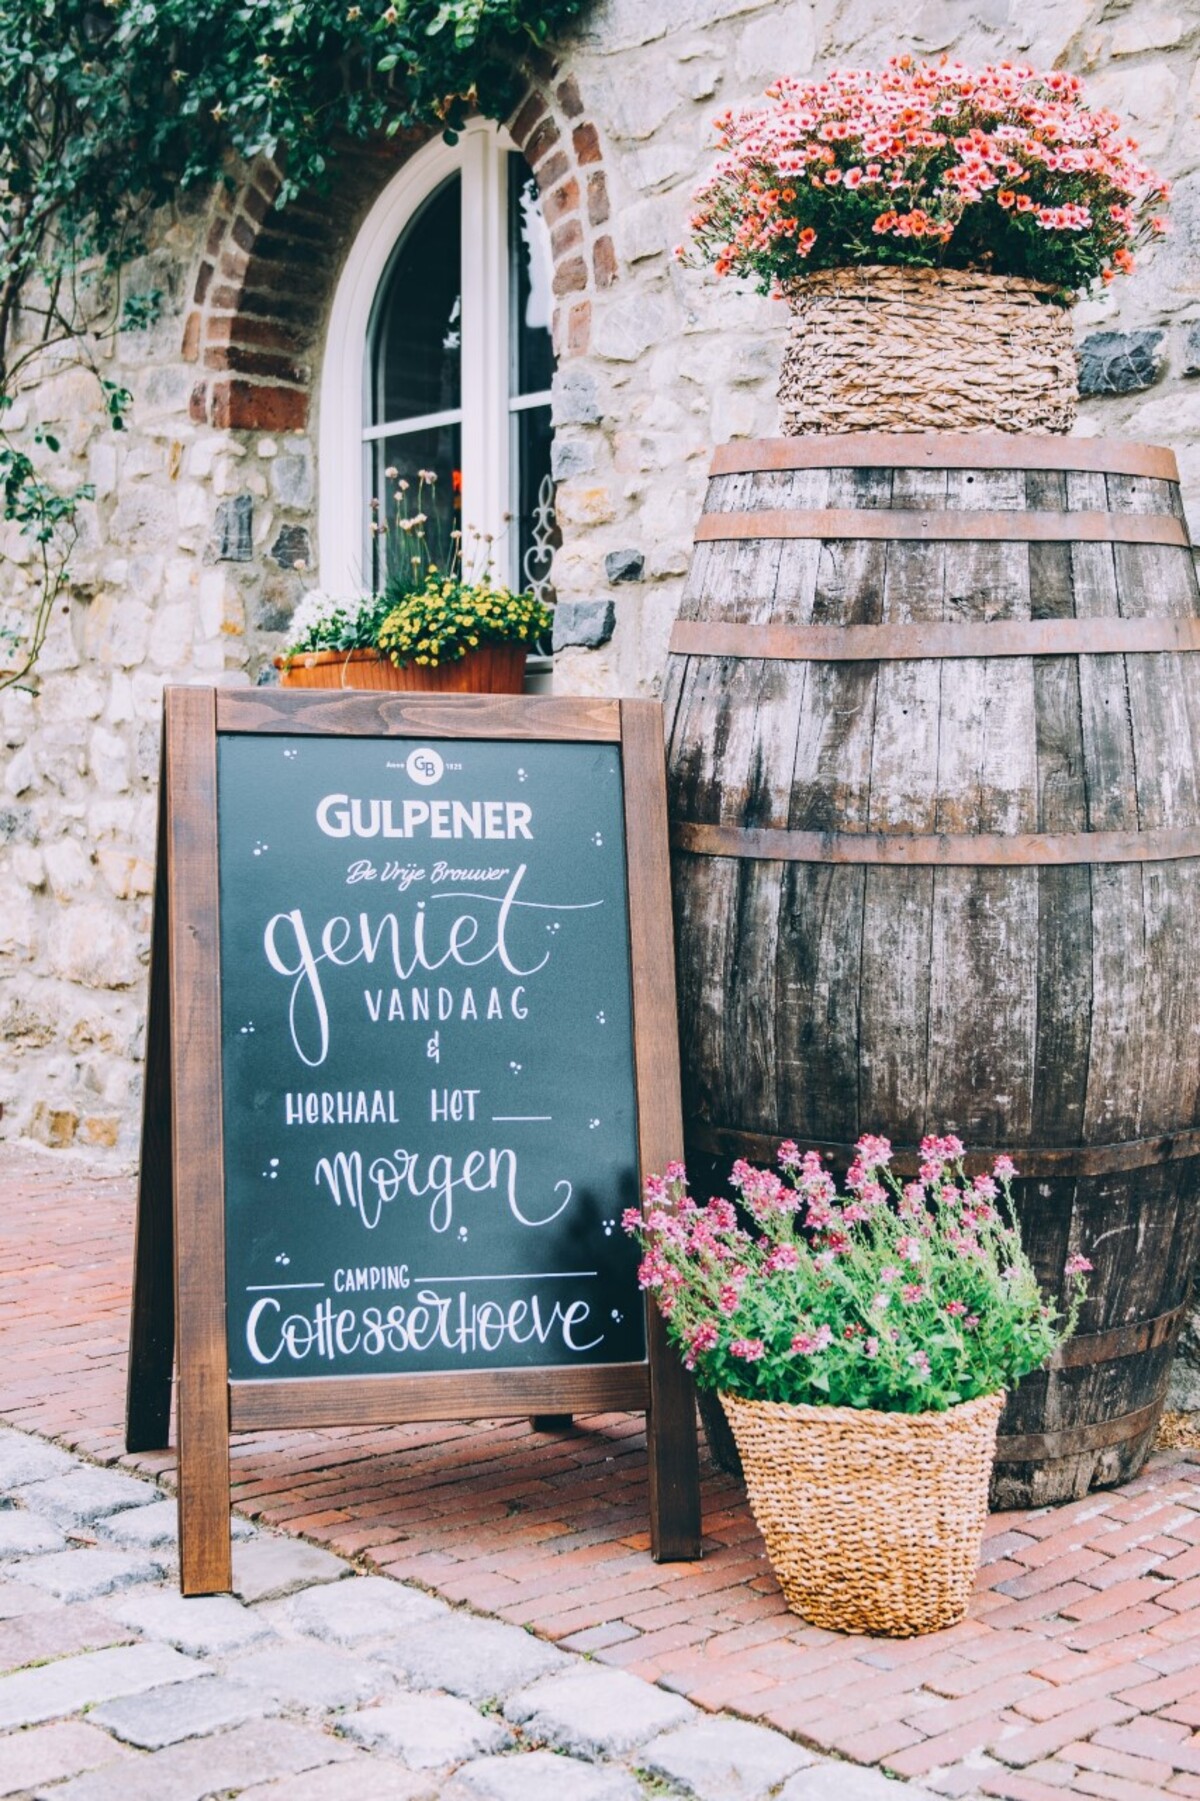 Anno GB 1825
GULPENER
De Vrije Brouwer
geniet
VANDAAG
&
HERHAAL HET
morgen
CAMPING
Cottesserhoeve